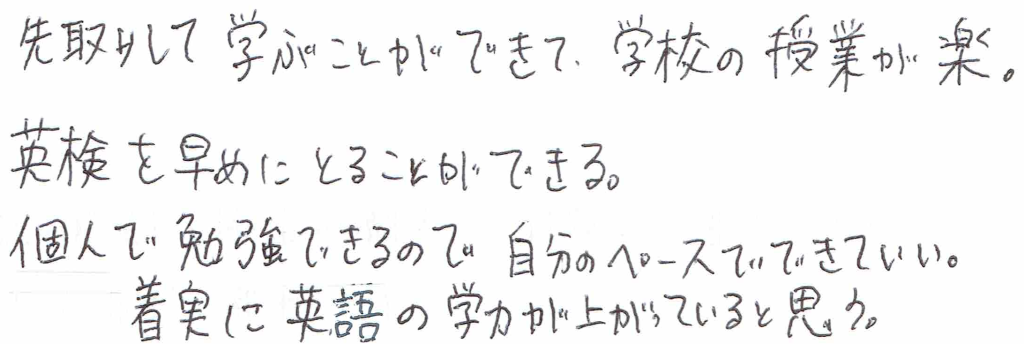 先取りして学ぶことができて、学校の授業が楽。
英検を早めにとることができる。
個人で勉強できるので自分のペースでできていい。
着実に英語の学力が上がっていると思う。